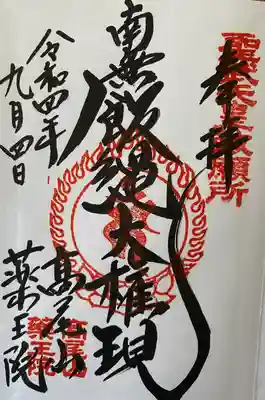 奉拝
聖武天皇勅願所
南無飯縄大権現
高尾山
薬王院
高尾山
薬王院
令和四年
九月四日